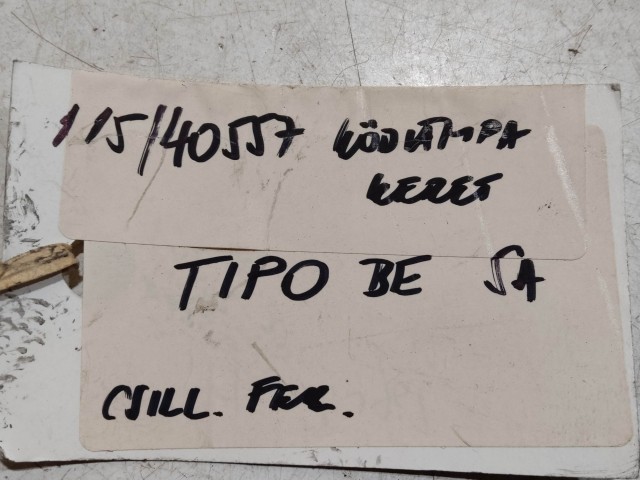 115/40557 KÖDLÁMPA
KERET
TIPO BE SA
CSILL. FEK.